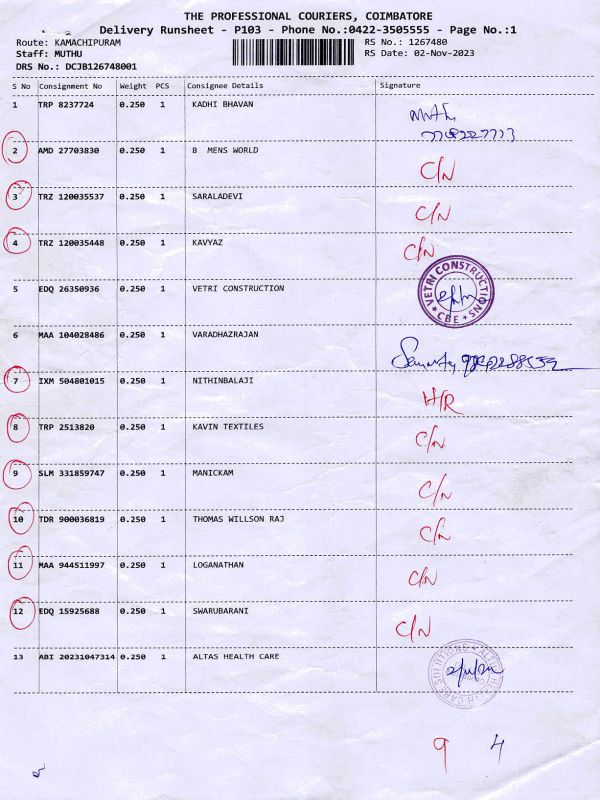 THE PROFESSIONAL COURIERS, COIMBATORE
Delivery Runsheet - P103 - Phone No.:0422-3505555 - Page No.:1
Route: KAMACHIPURAM RS No.: 1267480
Staff: MUTHU RS Date: 02-Nov-2023
DRS No.: DCJB126748001
S No Consignment No Weight PCS Consignee Details Signature
1 TRP 8237724 0.250 1 KADHI BHAVAN
2 AMD 27703830 0.250 1 B MENS WORLD C/N
3 TRZ 120035537 0.250 1 SARALADEVI C/N
4 TRZ 120035448 0.250 1 KAVYAZ C/N
5 EDQ 26350936 0.250 1 VETRI CONSTRUCTION VETRI CONSTRUCTIONS ★ CBE ★
6 MAA 104028486 0.250 1 VARADHAZRAJAN
7 IXM 504801015 0.250 1 NITHINBALAJI H/R
8 TRP 2513820 0.250 1 KAVIN TEXTILES C/N
9 SLM 331859747 0.250 1 MANICKAM C/N
10 TDR 900036819 0.250 1 THOMAS WILLSON RAJ C/N
11 MAA 944511997 0.250 1 LOGANATHAN C/N
12 EDQ 15925688 0.250 1 SWARUBARANI C/N
13 ABI 20231047314 0.250 1 ALTAS HEALTH CARE
9 4